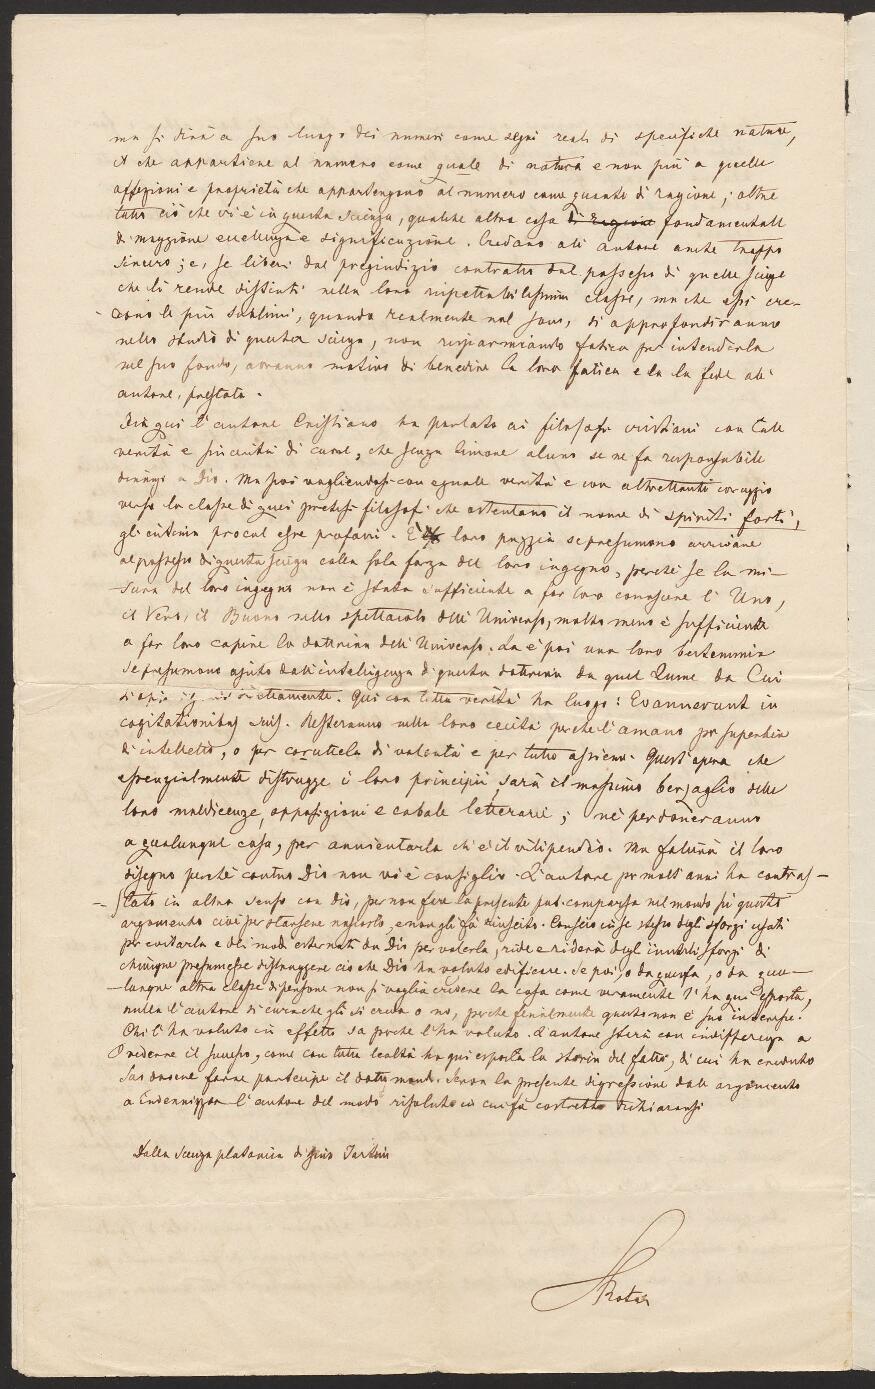 ma si dirà a suo luogo dei numeri come segni reali di specifiche nature,
il che appartiene al numero come quale di natura e non più a quelle
affezioni e proprietà che appartengono al numero come quanto di ragione; oltre
tutto ciò che vi è in questa scienza, qualche altra cosa di ragione fondamentale
di maggiore eccellenza e significazione. Credano all' autore anche troppo
sincero; e, se liberi dal pregiudizio contratto dal possesso di quelle scienze
che li rende distinti nella loro rispettabilissima classe, ma che essi cre-
dono le più sublimi, quando realmente nol sono, si approfondiranno
nello studio di questa scienza, non risparmiando fatica per intenderla
nel suo fondo, avranno motivo di benedire la loro fatica e la fede all'
autore, prestata.
Fin qui l'autore Cristiano ha parlato ai filosofi cristiani con tale
verità e sincerità di cuore, che senza timore alcuno se ne fa responsabile
dinanzi a Dio. Ma poi vogliendosi con eguale verità e con altrettanto coraggio
verso la classe di quei pretesi filosofi che ostentano il nome di spiriti forti,
gli intima procul este profani. È loro pazzia se presumono arrivare
al possesso di questa scienza colla sola forza del loro ingegno, perchè se la mi-
sura del loro ingegno non è stata sufficiente a far loro conoscere l' Uno,
il Vero, il Buono nello spettacolo dell' Universo, molto meno è sufficiente
a far loro capire la dottrina dell' Universo. La è poi una loro bestemmia
se presumono ajuto dall' intelligenza di questa dottrina da quel Lume da Cui
Qui con tutta verità ha luogo: Evanuerunt in
cogitationibus suis. Resteranno nella loro cecità perchè l' amano per superbia
di intelletto, o per corruttela di volontà e per tutto assieme. Quest' opera che
essenzialmente distrugge i loro principii, sarà il massimo bersaglio delle
loro maldicenze, opposizioni e cabale letterarie; nè perdoneranno
a qualunque cosa, per annientarla ch' è il vilipendio. Ma fallirà il loro
disegno perchè contro Dio non vi è consiglio. L' autore per molt' anni ha contras-
tato in altro senso con Dio, per non fare la presente comparsa nel mondo su questo
argomento cioè per starsene nascosto, e non gli fù riuscito. Conscio in se stesso degli sforzi usati
per evitarla e dei modi esternati da Dio per volerla, ride e riderà degl' inutili sforzi di
chiunque presumesse distruggere ciò che Dio ha voluto edificare. Se poi, o da questa, o da qua-
lunque altra classe di persone non si voglia credere la cosa come veramente l' ha qui esposta,
nulla l' autore si cura che gli si creda o no, perchè finalmente questo non è suo interesse.
Chi l' ha voluto in effetto sa perchè l' ha voluto. L' autore starà con indifferenza a
vederne il successo, come con tutta lealtà ha qui esposta la storia del fatto, di cui ha creduto
far partecipe il dotto mondo. Serva la presente digressione dall' argomento
a indennizzar l' autore del modo risoluto in cui fu costretto dichiararsi

Dalla scienza platonica di Gius Tartini

Rota